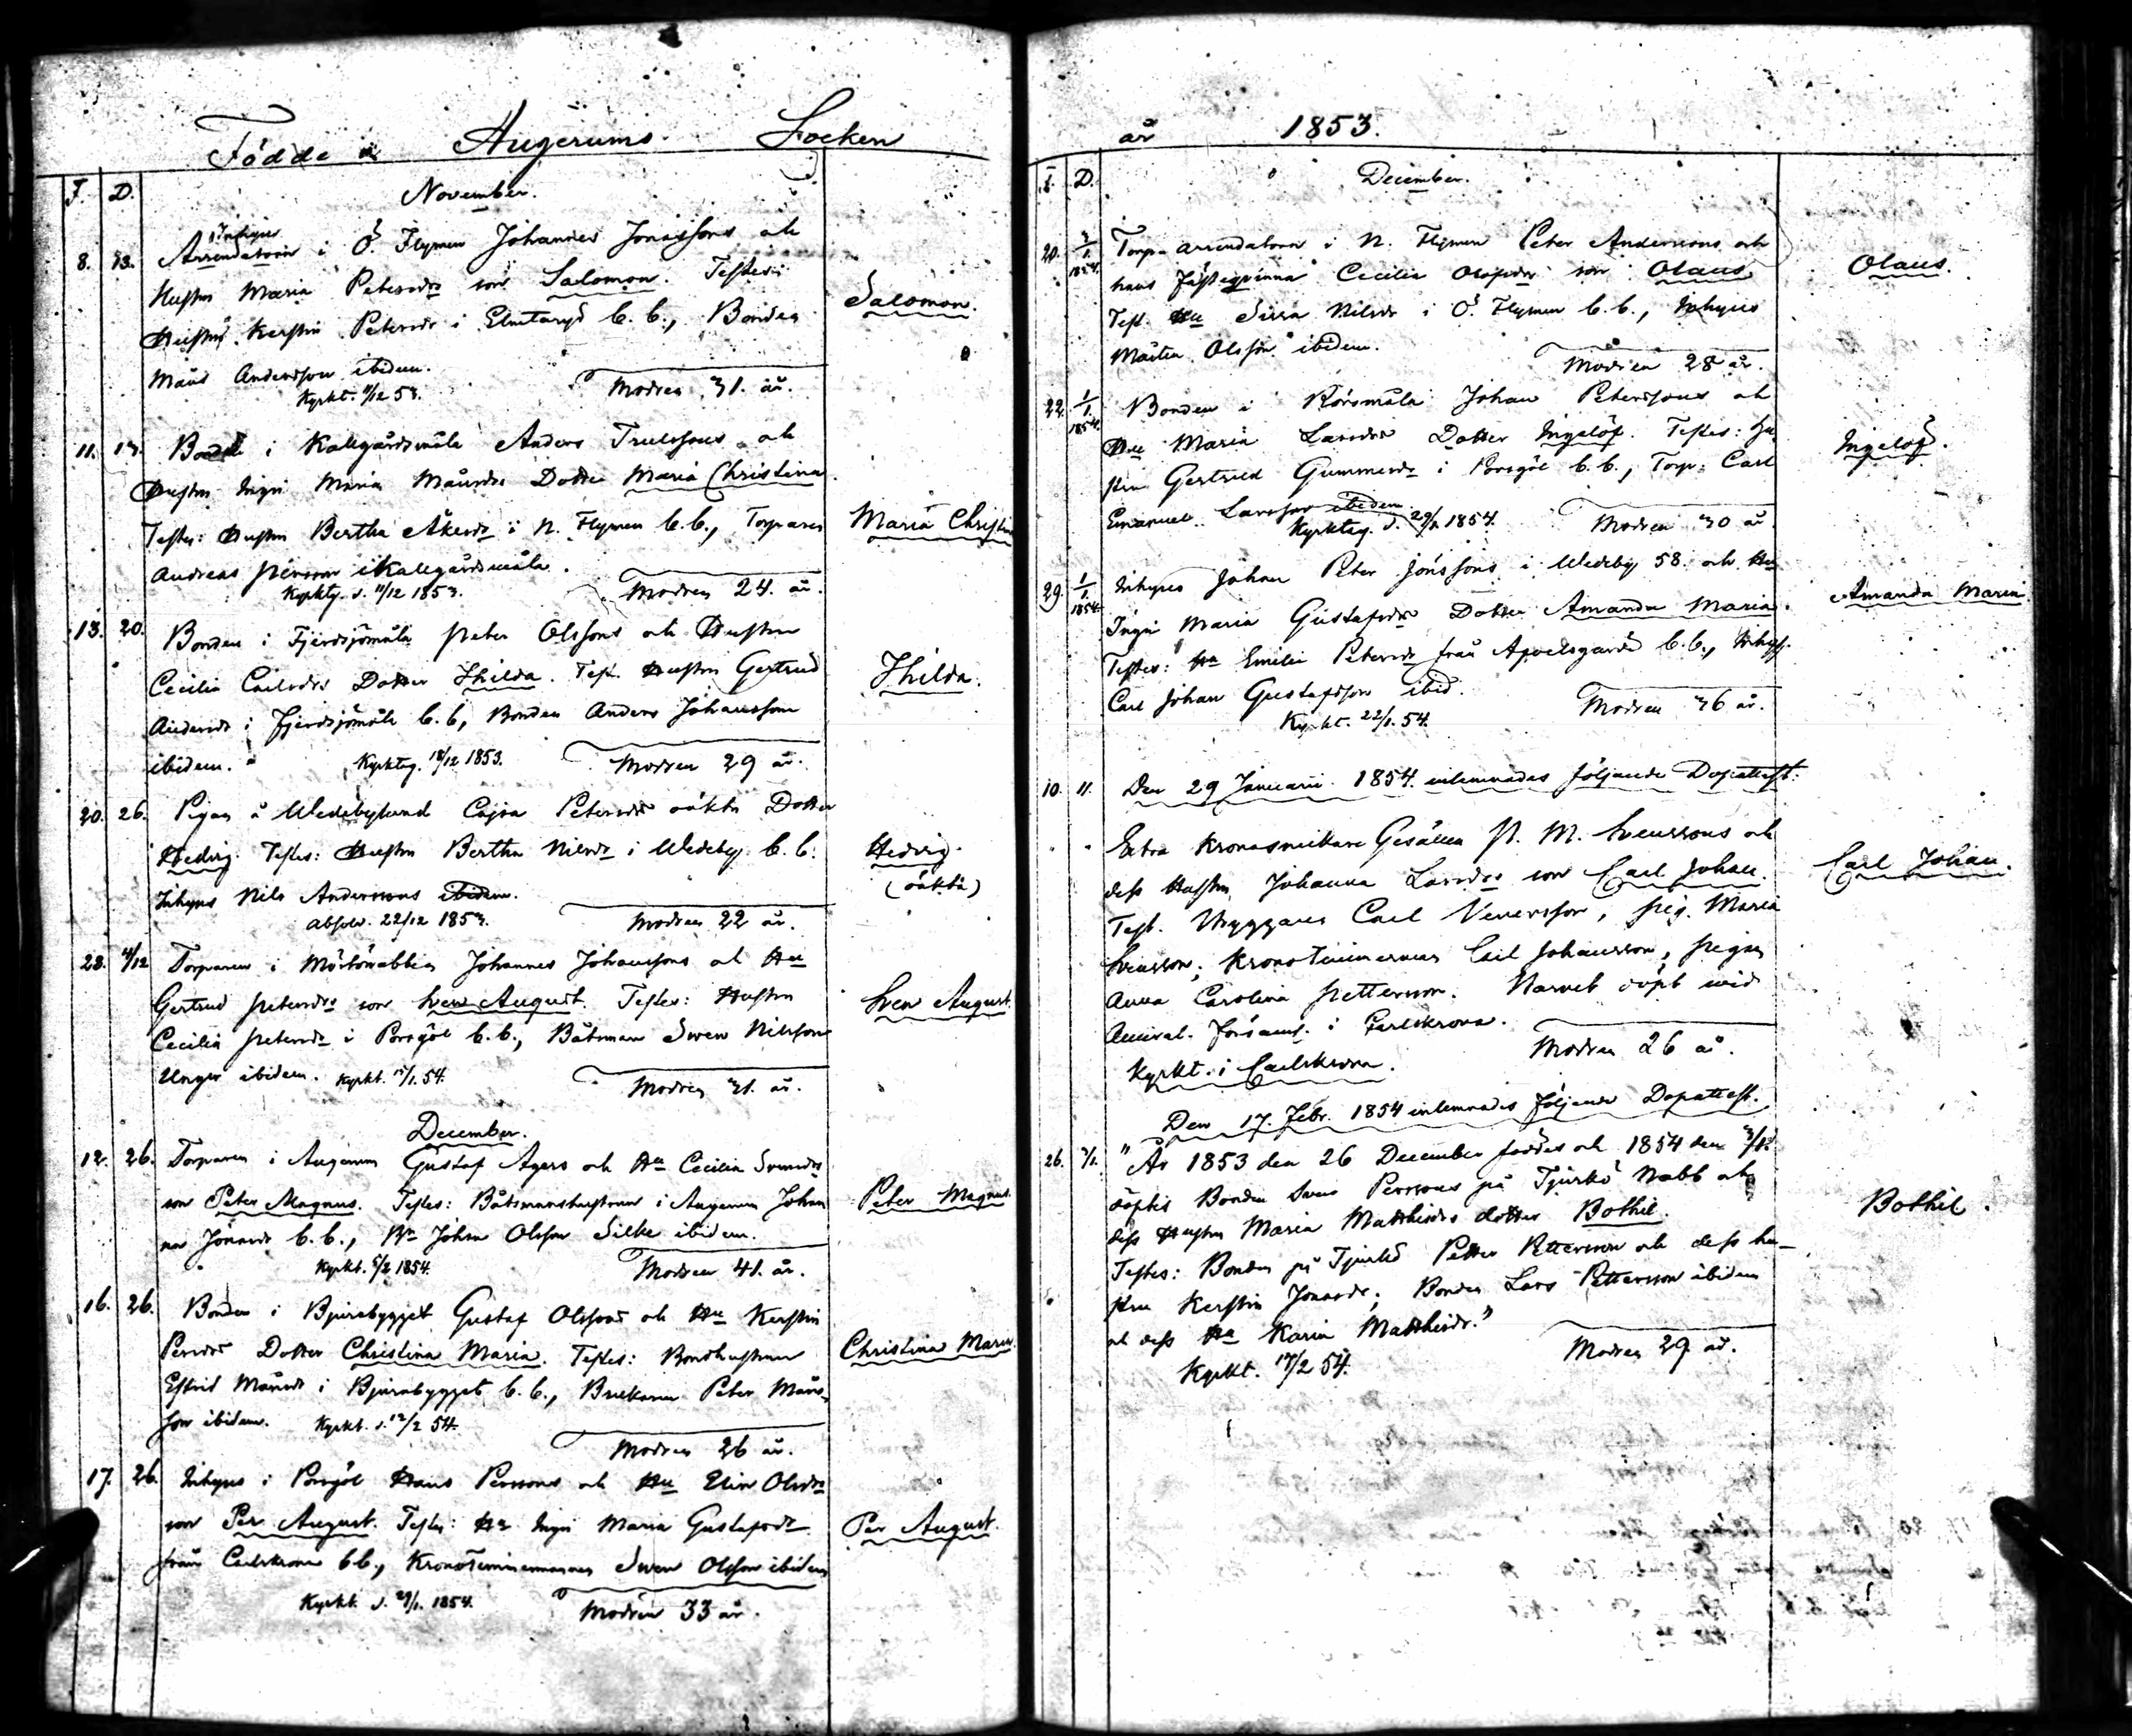 Födde i Augerums Socken
F. D. November.
Inhyses
8. 13. Arrendatorn i Ö. Flymen Johannes Jonassons och
Hustrus Maria Petersdr son Salomon. Testes: Salomon.
Hustru Kerstin Petersdr i Elmtaryd b. b., Bonden
Måns Andersson ibidem.
Kyrkt. 11/12 53. Modren 31. år.
11. 13. Bonde i Kallegårdsmåla Anders Trulssons och
Hustru Ingri Maria Månsdrs Dotter Maria Christina
Testes: Hustru Bertha Åkesdr i N. Flymen b. b., Torparen Maria Christin
Andreas Persson i Kallegårdsmåla.
Kyrktg. d. 11/12 1853. Modren 24. år.
13. 20. Bonden i Fjerdsjömåla Peter Olssons och Hustrun
Cecilia Carlsdrs Dotter Thilda. Test. Hustru Gertrud Thilda.
Andersdr i Fjerdsjömåla b. b, Bonden Anders Johansson
ibidem. Kyrktg. 18/12 1853. Modren 29 år.
20. 26. Pigan å Wedebylund Cajsa Petersdrs oäkta Dotter
Hedvig. Testes: Hustru Bertha Nilsdr i Wedeby b. b: Hedvig.
Inhyses Nils Anderssons ibidem. (oäkta)
Absolv. 22/12 1853. Modren 22 år.
23. 4/12 Torparen i Johannes Johanssons och Hu
Gertrud Petersdrs son Sven August. Testes: Hustru Sven August.
Cecilia Petersdr i Porsgöl b. b., Båtsman Swen Nilsson
Unger ibidem. Kyrkt. /1. 54. Modren 31. år.
December.
12. 26. Torparen i Augerum Gustaf Agers och Hu Cecilia Svensdrs
son Peter Magnus. Testes: Båtsmanshustrun i Augerum Johan Peter Magnus.
na Jönsdr b. b., Bn Johan Olsson Silke ibidem.
Kyrkt. 5/2 1854. Modren 41. år.
16. 26. Bonden i Bjurabygget Gustaf Olssons och Hu Kerstin
Persdrs Dotter Christina Maria. Testes: Bondhustrun Christina Maria.
Estrid Månsdr i Bjurabygget b. b., Brukaren Peter Måns-
son ibidem. Kyrkt. d. 12/2 54.
Modren 26 år.
17. 26. Inhyses i Porsgöl Hans Perssons och Hu Elin Olsdrs
son Per August. Testes: Hu Ingri Maria Gustafsdr Per August.
från Carlskrona b b., Kronotimmermannen Swen Olsson ibidem
Kyrkt. d. 29/1. 1854. Modren 33 år.
år 1853.
F. D. December.
20. 1/1. 1854. Torp-arrendatorn i N. Flymen Peter Anderssons och
hans Fästeqvinna Cecilia Olofsdrs son Olaus Olaus.
Test. Hu Sissa Nilsdr i Ö. Flymen b. b., Inhyses
Mårten Olsson ibidem.
Modren 28 år.
22. 1/1. 1854. Bonden i Rörsmåla Johan Peterssons och
Hu Maria Larsdrs Dotter Ingelöf. Testes: Hu- Ingelöf.
stru Gertrud Gummesdr i Porsgöl b. b., Torp: Carl
Emanuel Larsson ibidem
Kyrktag. d. 29/1 1854. Modren 30 år.
29. 1/1. 1854. Inhyses Johan Peter Jönssons i Wedeby 58. och Hu
Ingri Maria Gustafsdrs Dotter Amanda Maria. Amanda Maria.
Testes: Hu Emilie Petersdr från Apoelsgärde b. b., Inhyss.
Carl Johan Gustafsson ibid.
Kyrkt. 22/1. 54. Modren 36 år.
10. 11. Den 29 Januari 1854. inlemnades följande Dopattest:
Extra Kronosmedkare Gesällen P. M. Svenssons och
dess Hustru Johanna Larsdrs son Carl Johan. Carl Johan.
Test. Carl , Pig. Maria
Svensson; Kronotimmerman Carl Johansson, Pigan
Anna Carolina Pettersson. Barnet döpt wid
Amiral. Församl. i Carlskrona.
Kyrkt. i Carlskrona. Modren 26 år.
Den 17. Febr. 1854 inlemnades följande Dopattest.
26. 3/1. "År 1853 den 26 December föddes och 1854 den 3/1.
döptes Bonden Svens Perssons på Tjurkö Nabb och
dess Hustru Maria Matthisdrs dotter Bothil. Bothil.
Testes: Bonden på Tjurkö Petter Pettersson och dess hu-
stru Kerstin Jonasdr; Bonden Lars Pettersson ibidem
och dess Hu Karin Matthisdr."
Kyrkt. 17/2 54. Modren 29 år.